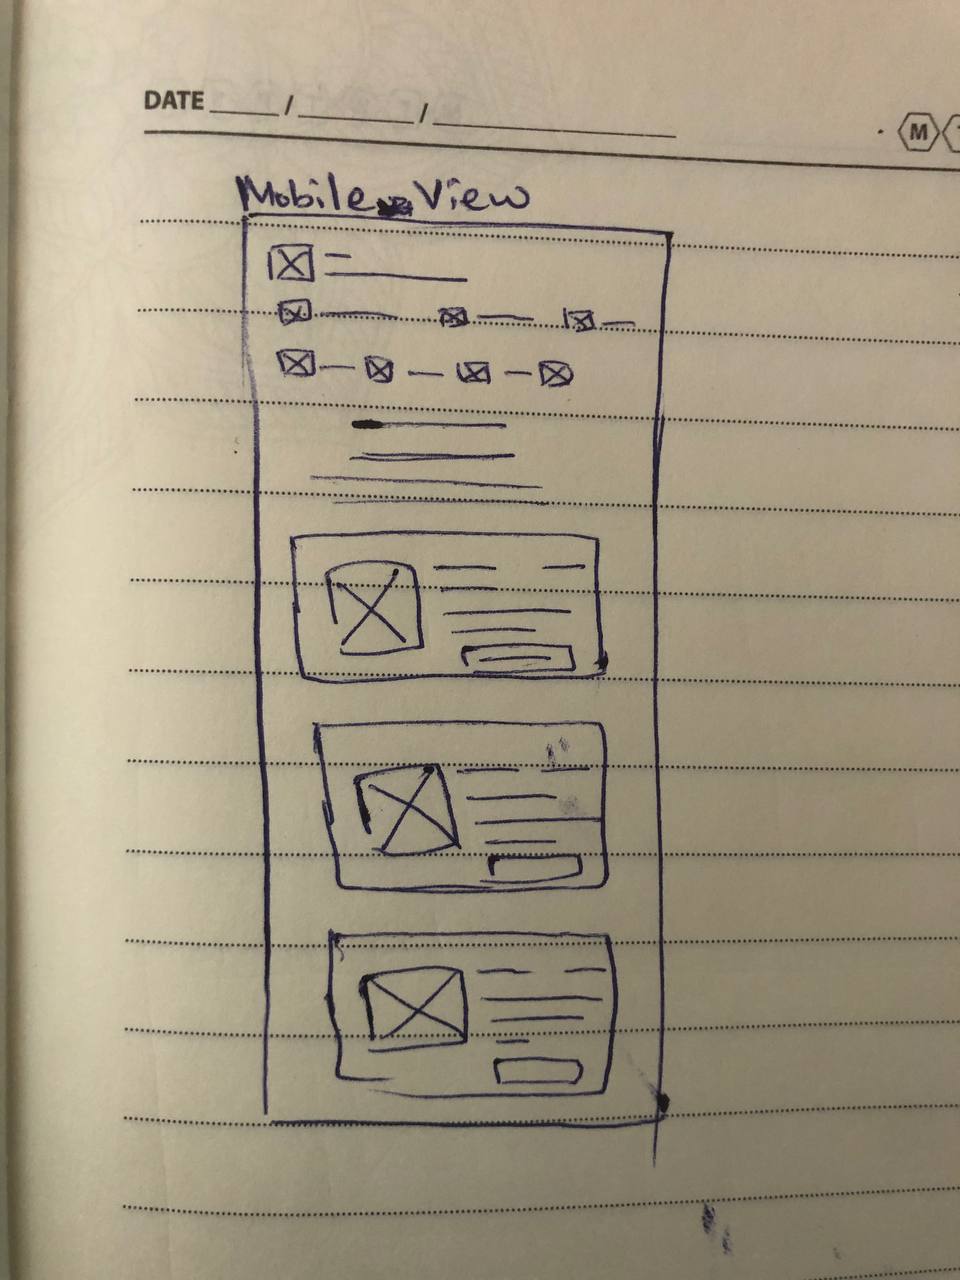 DATE ____ / ____ / ____
M
Mobile View